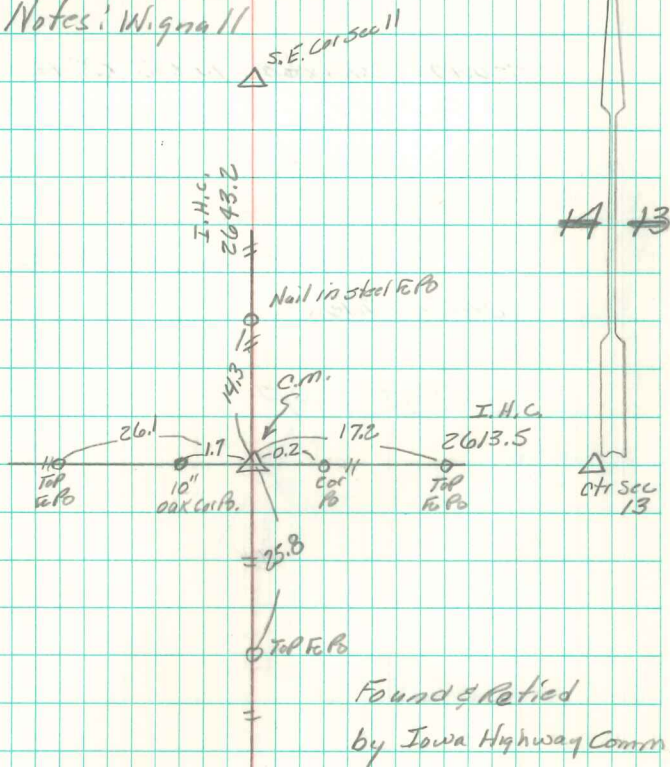 Notes: Wignall
S.E. Cor sec 11
I.H.C.
2643.2
14 13
Nail in steel FcPo
14.3
C.M.
I.H.C.
2613.5
26.1
1.7
0.2
17.2
Top
FcPo
10"
oak Cor Po.
Cor
Po
Top
FcPo
Ctr Sec
13
25.8
Top FcPo
Found & Retied
by Iowa Highway Comm